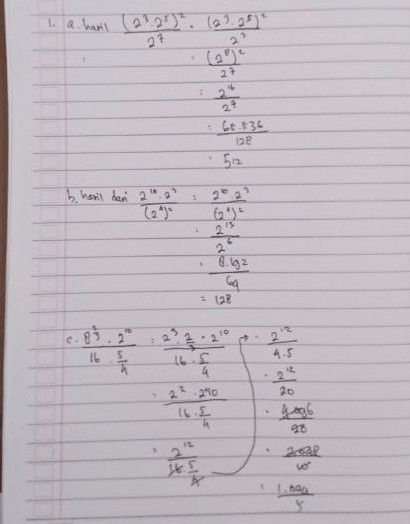 1. a. hasil (2³.2⁵)²/2⁷ = (2³.2⁵)²/2⁷
= (2⁸)²/2⁷
= 2¹⁶/2⁷
= 65.536/128
= 512
b. hasil dari 2¹⁰.2³/(2⁴)² = 2¹⁰.2³/(2⁴)²
= 2¹³/2⁶
= 8.192/64
= 128
c. 8^(2/3) . 2¹⁰/16 . 5/4 = 2³.2/3 . 2¹⁰/16 . 5/4 → = 2¹²/4.5
= 2² . 2¹⁰/16 . 5/4 = 2¹²/20
= 4.096/20
= 2¹²/16 . 5/4 = 2.048/10
= 1.024/5